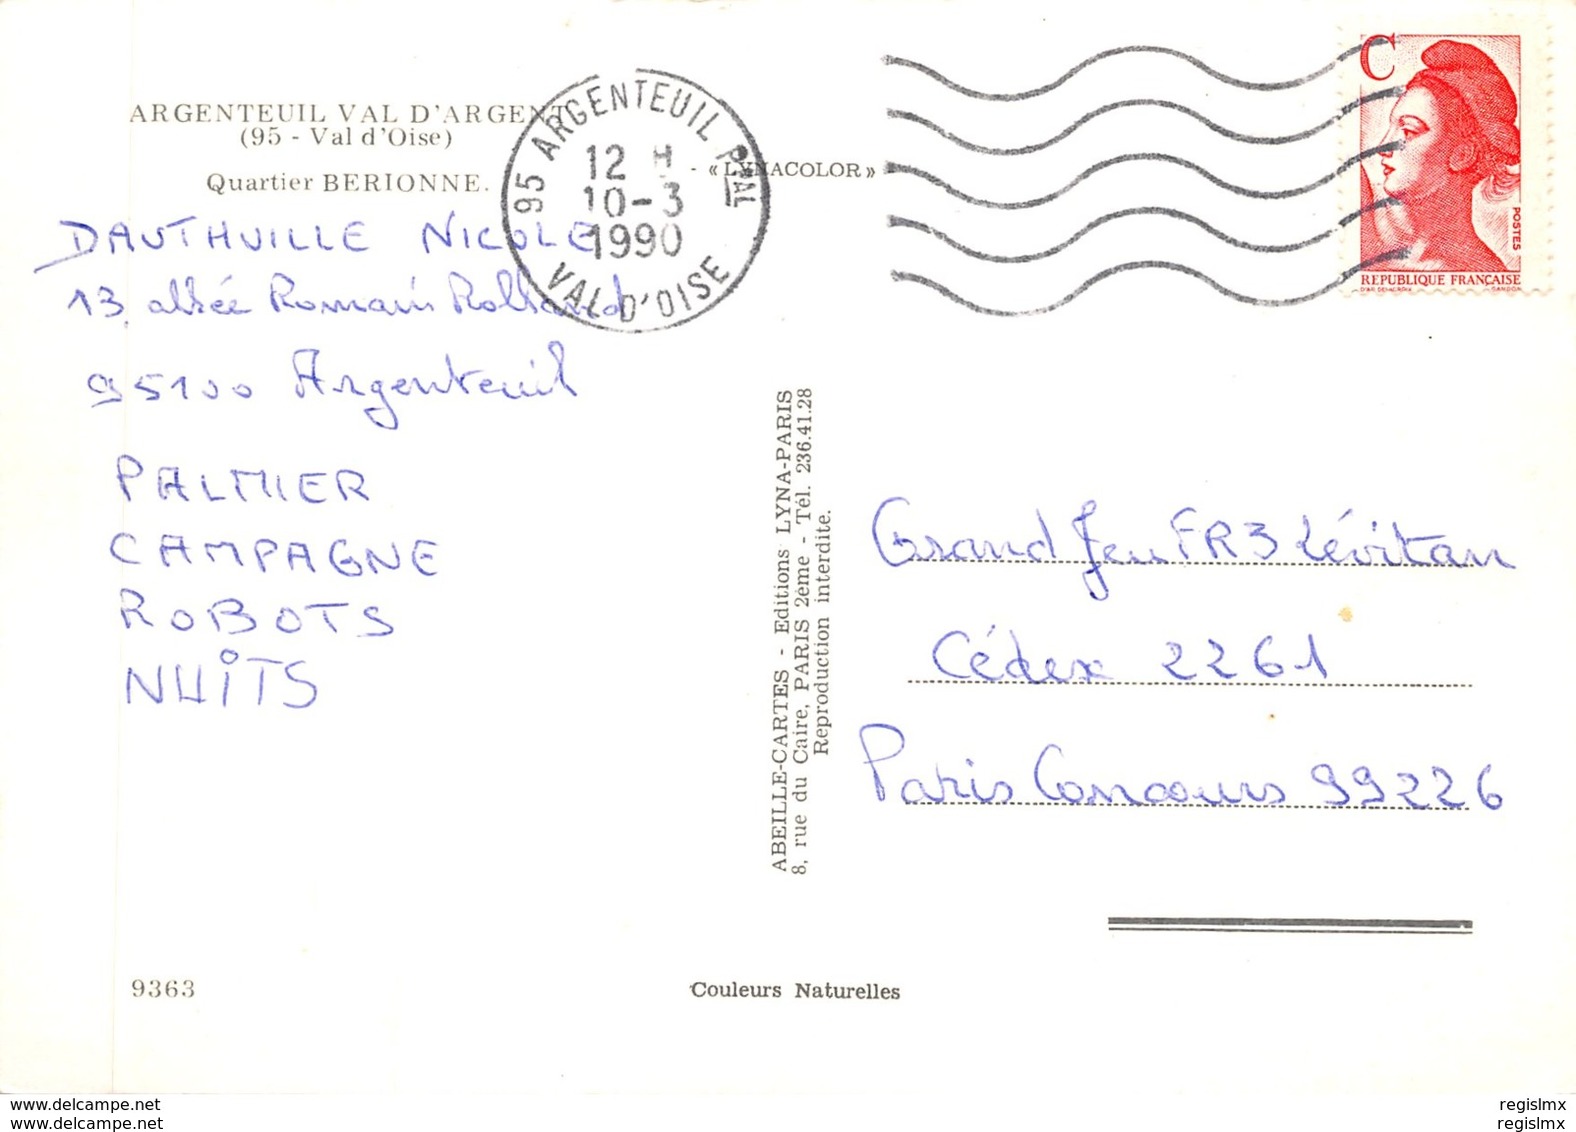 ARGENTEUIL VAL D'ARGENT
(95 - Val d'Oise)
Quartier BERIONNE.
- « LYNACOLOR »
95 ARGENTEUIL PPAL
12 H
10-3
1990
VAL D'OISE
C
POSTES
REPUBLIQUE FRANÇAISE
D'AP. DELACROIX GANDON
DAUTHUILLE NICOLE
13, allée Romain Rolland
95100 Argenteuil
PALMIER
CAMPAGNE
ROBOTS
NUITS
ABEILLE-CARTES - Editions LYNA-PARIS
8, rue du Caire, PARIS 2ème - Tél. 236.41.28
Reproduction interdite.
Grand Jeu FR3 Lévitan
Cédex 2261
Paris Concours 99226
9363
Couleurs Naturelles
www.delcampe.net
www.delcampe.net
regislmx
regislmx